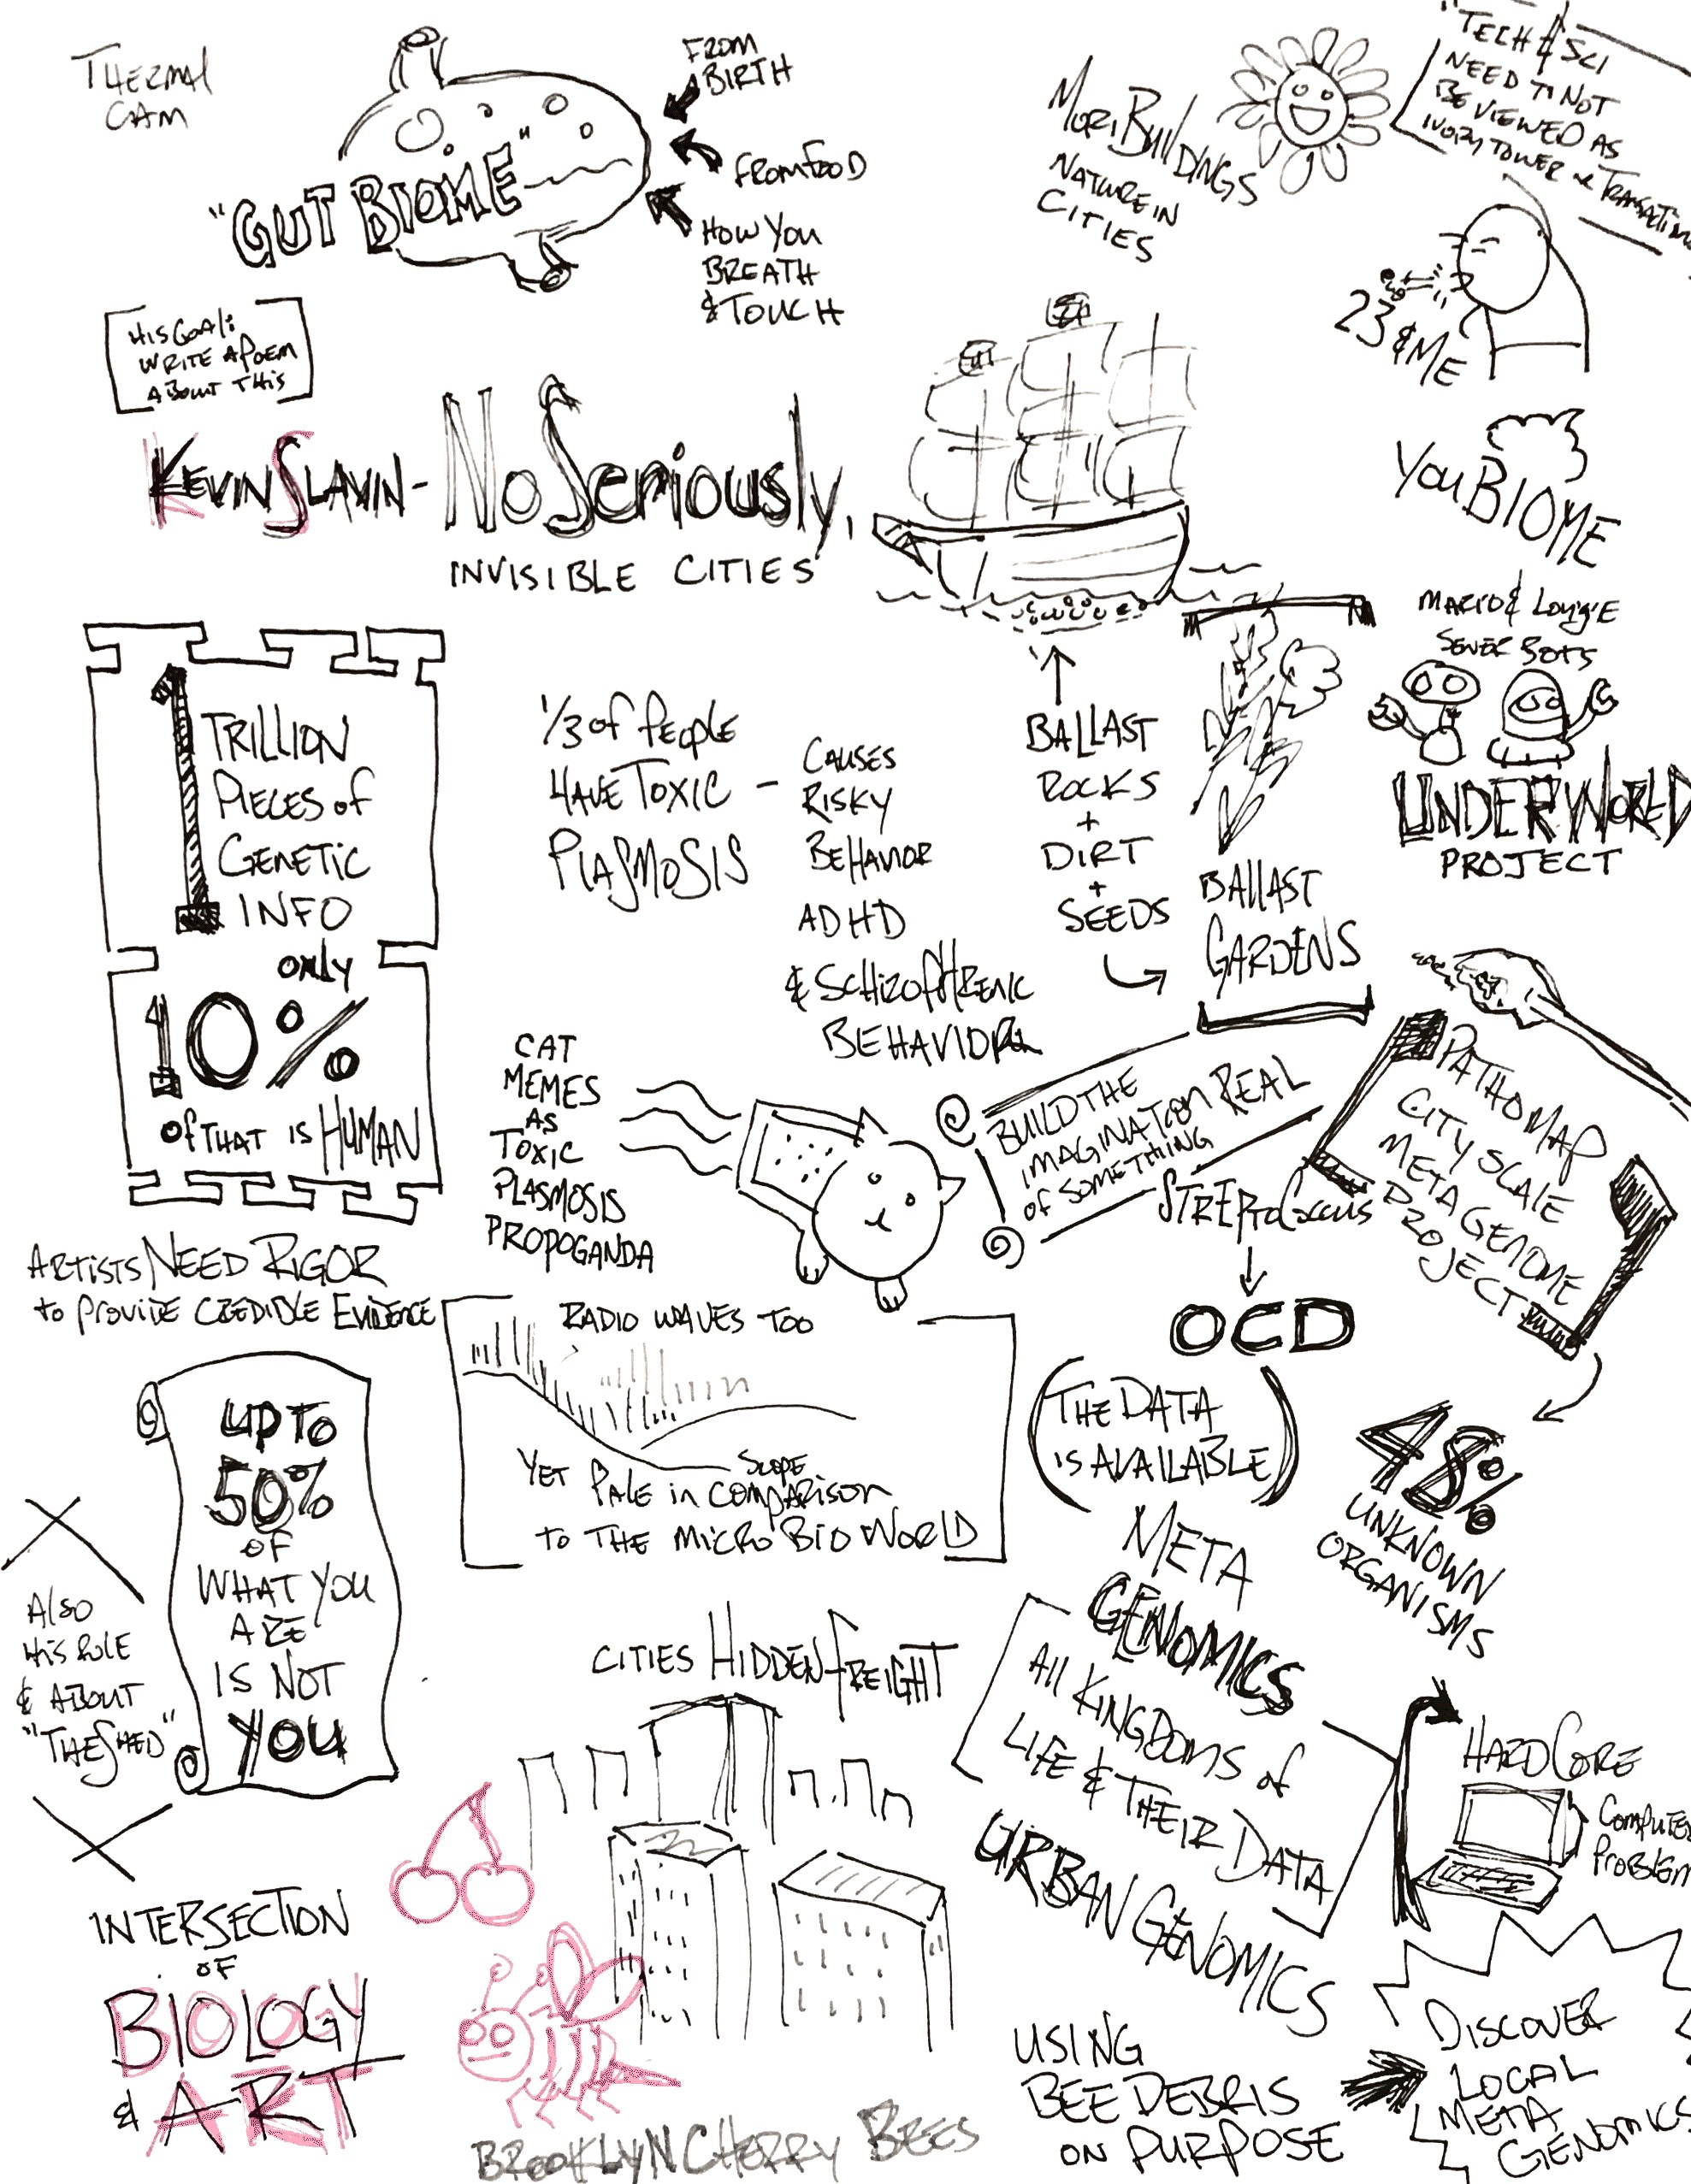 THERMAL
CAM
"GUT BIOME"
FROM
BIRTH
FROM FOOD
HOW YOU
BREATH
& TOUCH
MORI BUILDINGS
NATURE IN
CITIES
"TECH & SCI
NEED TO NOT
BE VIEWED AS
IVORY TOWER
23 & ME
HIS GOAL:
WRITE A POEM
ABOUT THIS
KEVIN SLAVIN - NO SERIOUSLY,
INVISIBLE CITIES
YOU BIOME
MARIO & LOUIGIE
SEWER BOTS
UNDERWORLD
PROJECT
1 TRILLION
PIECES OF
GENETIC
INFO
ONLY
10%
OF THAT IS HUMAN
1/3 OF PEOPLE
HAVE TOXIC -
PLASMOSIS
CAUSES
RISKY
BEHAVIOR
ADHD
& SCHIZOPHRENIC
BEHAVIOR
BALLAST
ROCKS
+
DIRT
+
SEEDS
BALLAST
GARDENS
CAT
MEMES
AS
TOXIC
PLASMOSIS
PROPOGANDA
BUILD THE
IMAGINATION REAL
OF SOMETHING
PATHOMAP
CITY SCALE
META GENOME
PROJECT
STREPTOCOCCUS
OCD
(THE DATA
IS AVAILABLE)
48%
UNKNOWN
ORGANISMS
ARTISTS NEED RIGOR
TO PROVIDE CREDIBLE EVIDENCE
RADIO WAVES TOO
YET PALE IN SCOPE COMPARISON
TO THE MICRO BIO WORLD
UP TO
50%
OF
WHAT YOU
ARE
IS NOT
YOU
ALSO
HIS ROLE
& ABOUT
"THE SHED"
META
GENOMICS
ALL KINGDOMS OF
LIFE & THEIR DATA
URBAN GENOMICS
HARD CORE
COMPUTER
PROBLEM
CITIES HIDDEN FREIGHT
INTERSECTION
OF
BIOLOGY
& ART
BROOKLYN CHERRY BEES
USING
BEE DEBRIS
ON PURPOSE
DISCOVER
LOCAL
META
GENOMICS